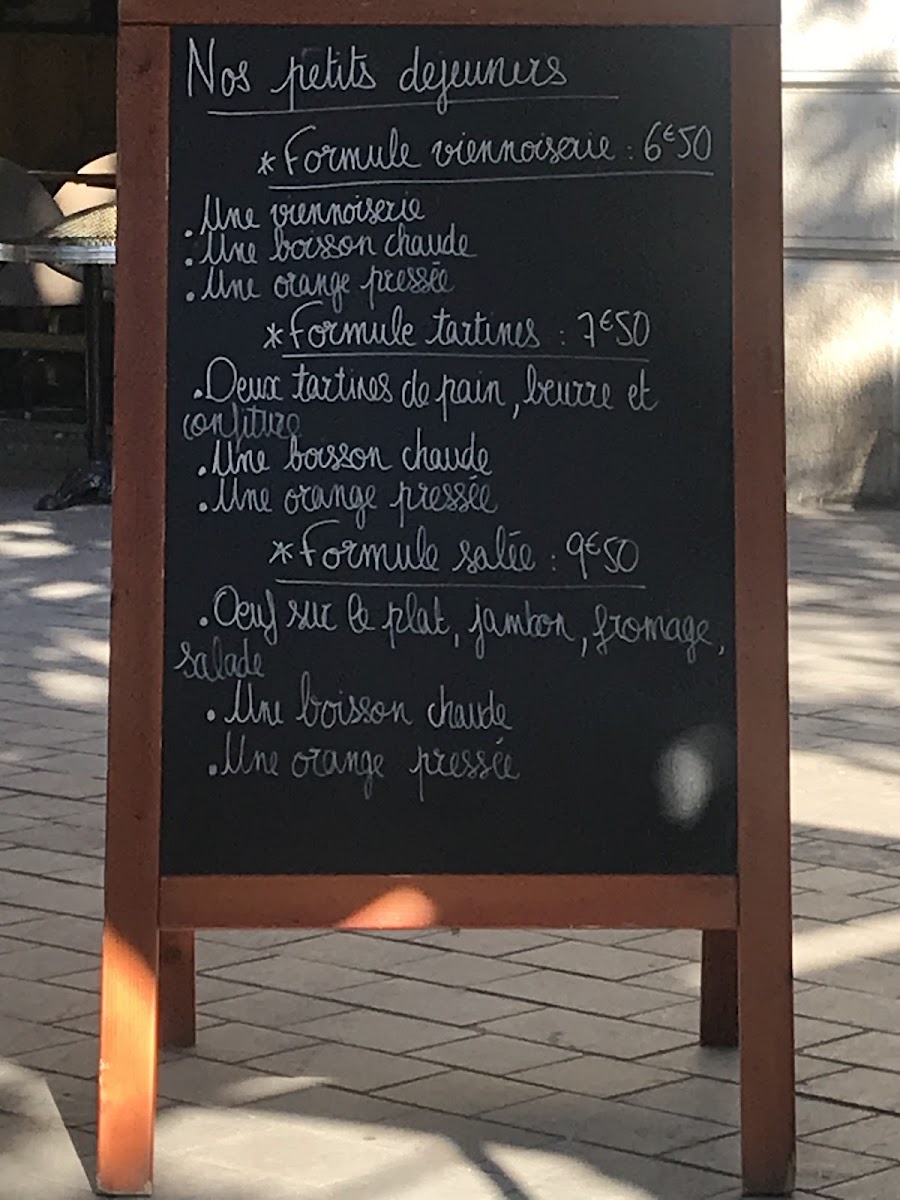 Nos petits dejeuners
*Formule viennoiserie : 6€50
. Une viennoiserie
. Une boisson chaude
. Une orange pressée
*Formule tartines : 7€50
. Deux tartines de pain, beurre et
confiture
. Une boisson chaude
. Une orange pressée
*Formule salée : 9€50
. Oeuf sur le plat, jambon, fromage,
salade
. Une boisson chaude
. Une orange pressée